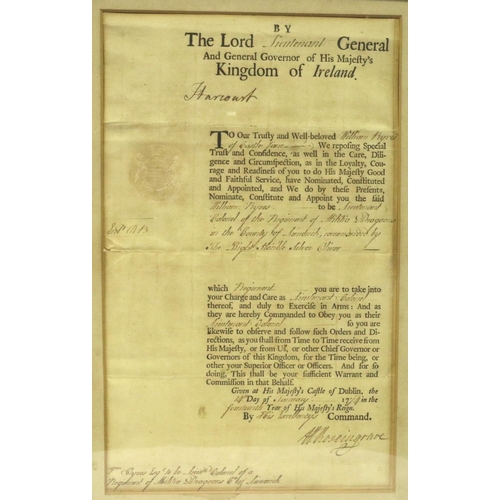 BY
The Lord Lieutenant General
And General Governor of His Majesty's
Kingdom of Ireland.
Harcourt
TO Our Trusty and Well-beloved William
of Castle We reposing Special
Trust and Confidence, as well in the Care, Dili-
gence and Circumspection, as in the Loyalty, Cou-
rage and Readiness of you to do His Majesty Good
and Faithful Service, have Nominated, Constituted
and Appointed, and We do by these Presents,
Nominate, Constitute and Appoint you the said
William to be Lieutenant
Colonel of the Regiment of Militia Dragoons
in the County of commanded by
The Right Honble Silver Oliver
which Regiment you are to take into
your Charge and Care as Lieutenant Colonel
thereof, and duly to Exercise in Arms: And as
they are hereby Commanded to Obey you as their
Lieutenant Colonel so you are
likewise to observe and follow such Orders and Di-
rections, as you shall from Time to Time receive from
His Majesty, or from Us, or other Chief Governor or
Governors of this Kingdom, for the Time being, or
other your Superior Officer or Officers. And for so
doing, This shall be your sufficient Warrant and
Commission in that Behalf.
Given at His Majesty's Castle of Dublin, the
Day of January 177 in the
fourteenth Year of His Majesty's Reign.
By His Excellency's Command.
Esqr. to be Lieutt. Colonel of a
Regiment of Militia Dragoons